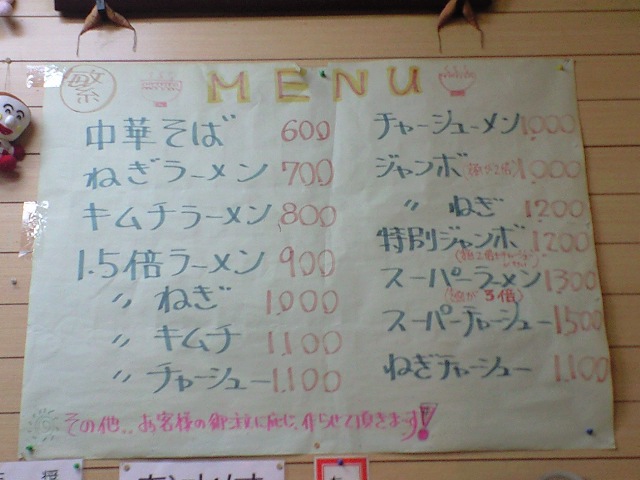 繁 MENU
中華そば 600
ねぎラーメン 700
キムチラーメン 800
1.5倍ラーメン 900
〃 ねぎ 1.000
〃 キムチ 1.100
〃 チャーシュー 1.100
チャーシューメン 1.000
ジャンボ(麺が2倍) 1.000
〃 ねぎ 1200
特別ジャンボ 1200
スーパーラーメン 1300
(麺が3倍)
スーパーチャーシュー 1500
ねぎチャーシュー 1.100
その他..お客様の御注文に応じ、作らせて頂きます!